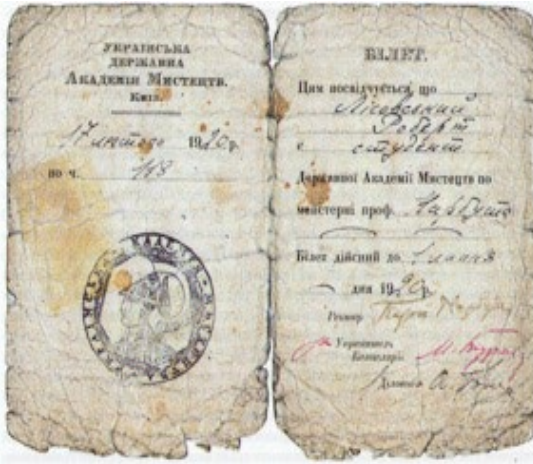 УКРАЇНСЬКА
ДЕРЖАВНА
АКАДЕМІЯ МИСТЕЦТВ.
Київ.
17 лютого 1920 р.
по ч. 118
БІЛЕТ.
Цим посвідчується, що
Лісовський
Роберт
є студент
Державної Академії Мистецтв по
майстерні проф. Нарбута
Білет дійсний до 1 липня
дня 1920 р.
Ректор Нарбут
Управитель
Канцелярії
Діловод